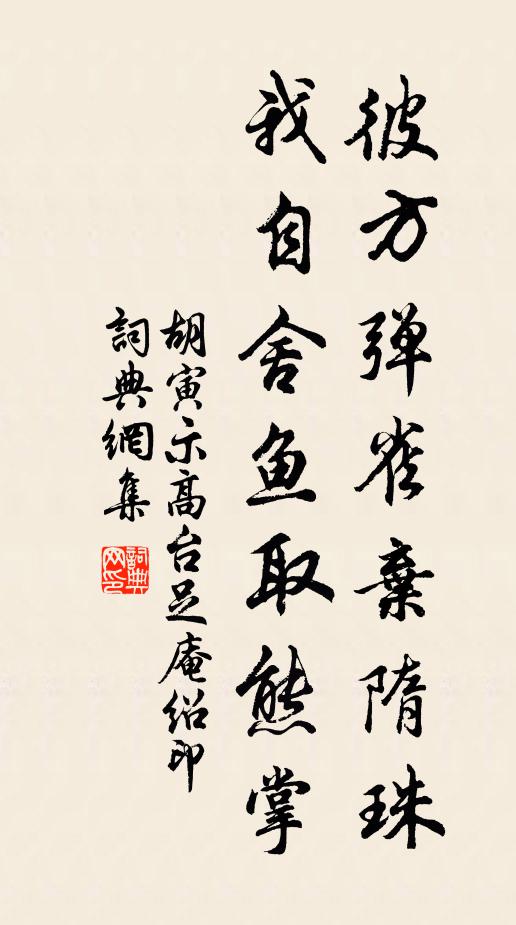 彼方弹雀棄隋珠
我自舍鱼取熊掌
胡寅示高台足庵绍印
詞典網集
詞典网印